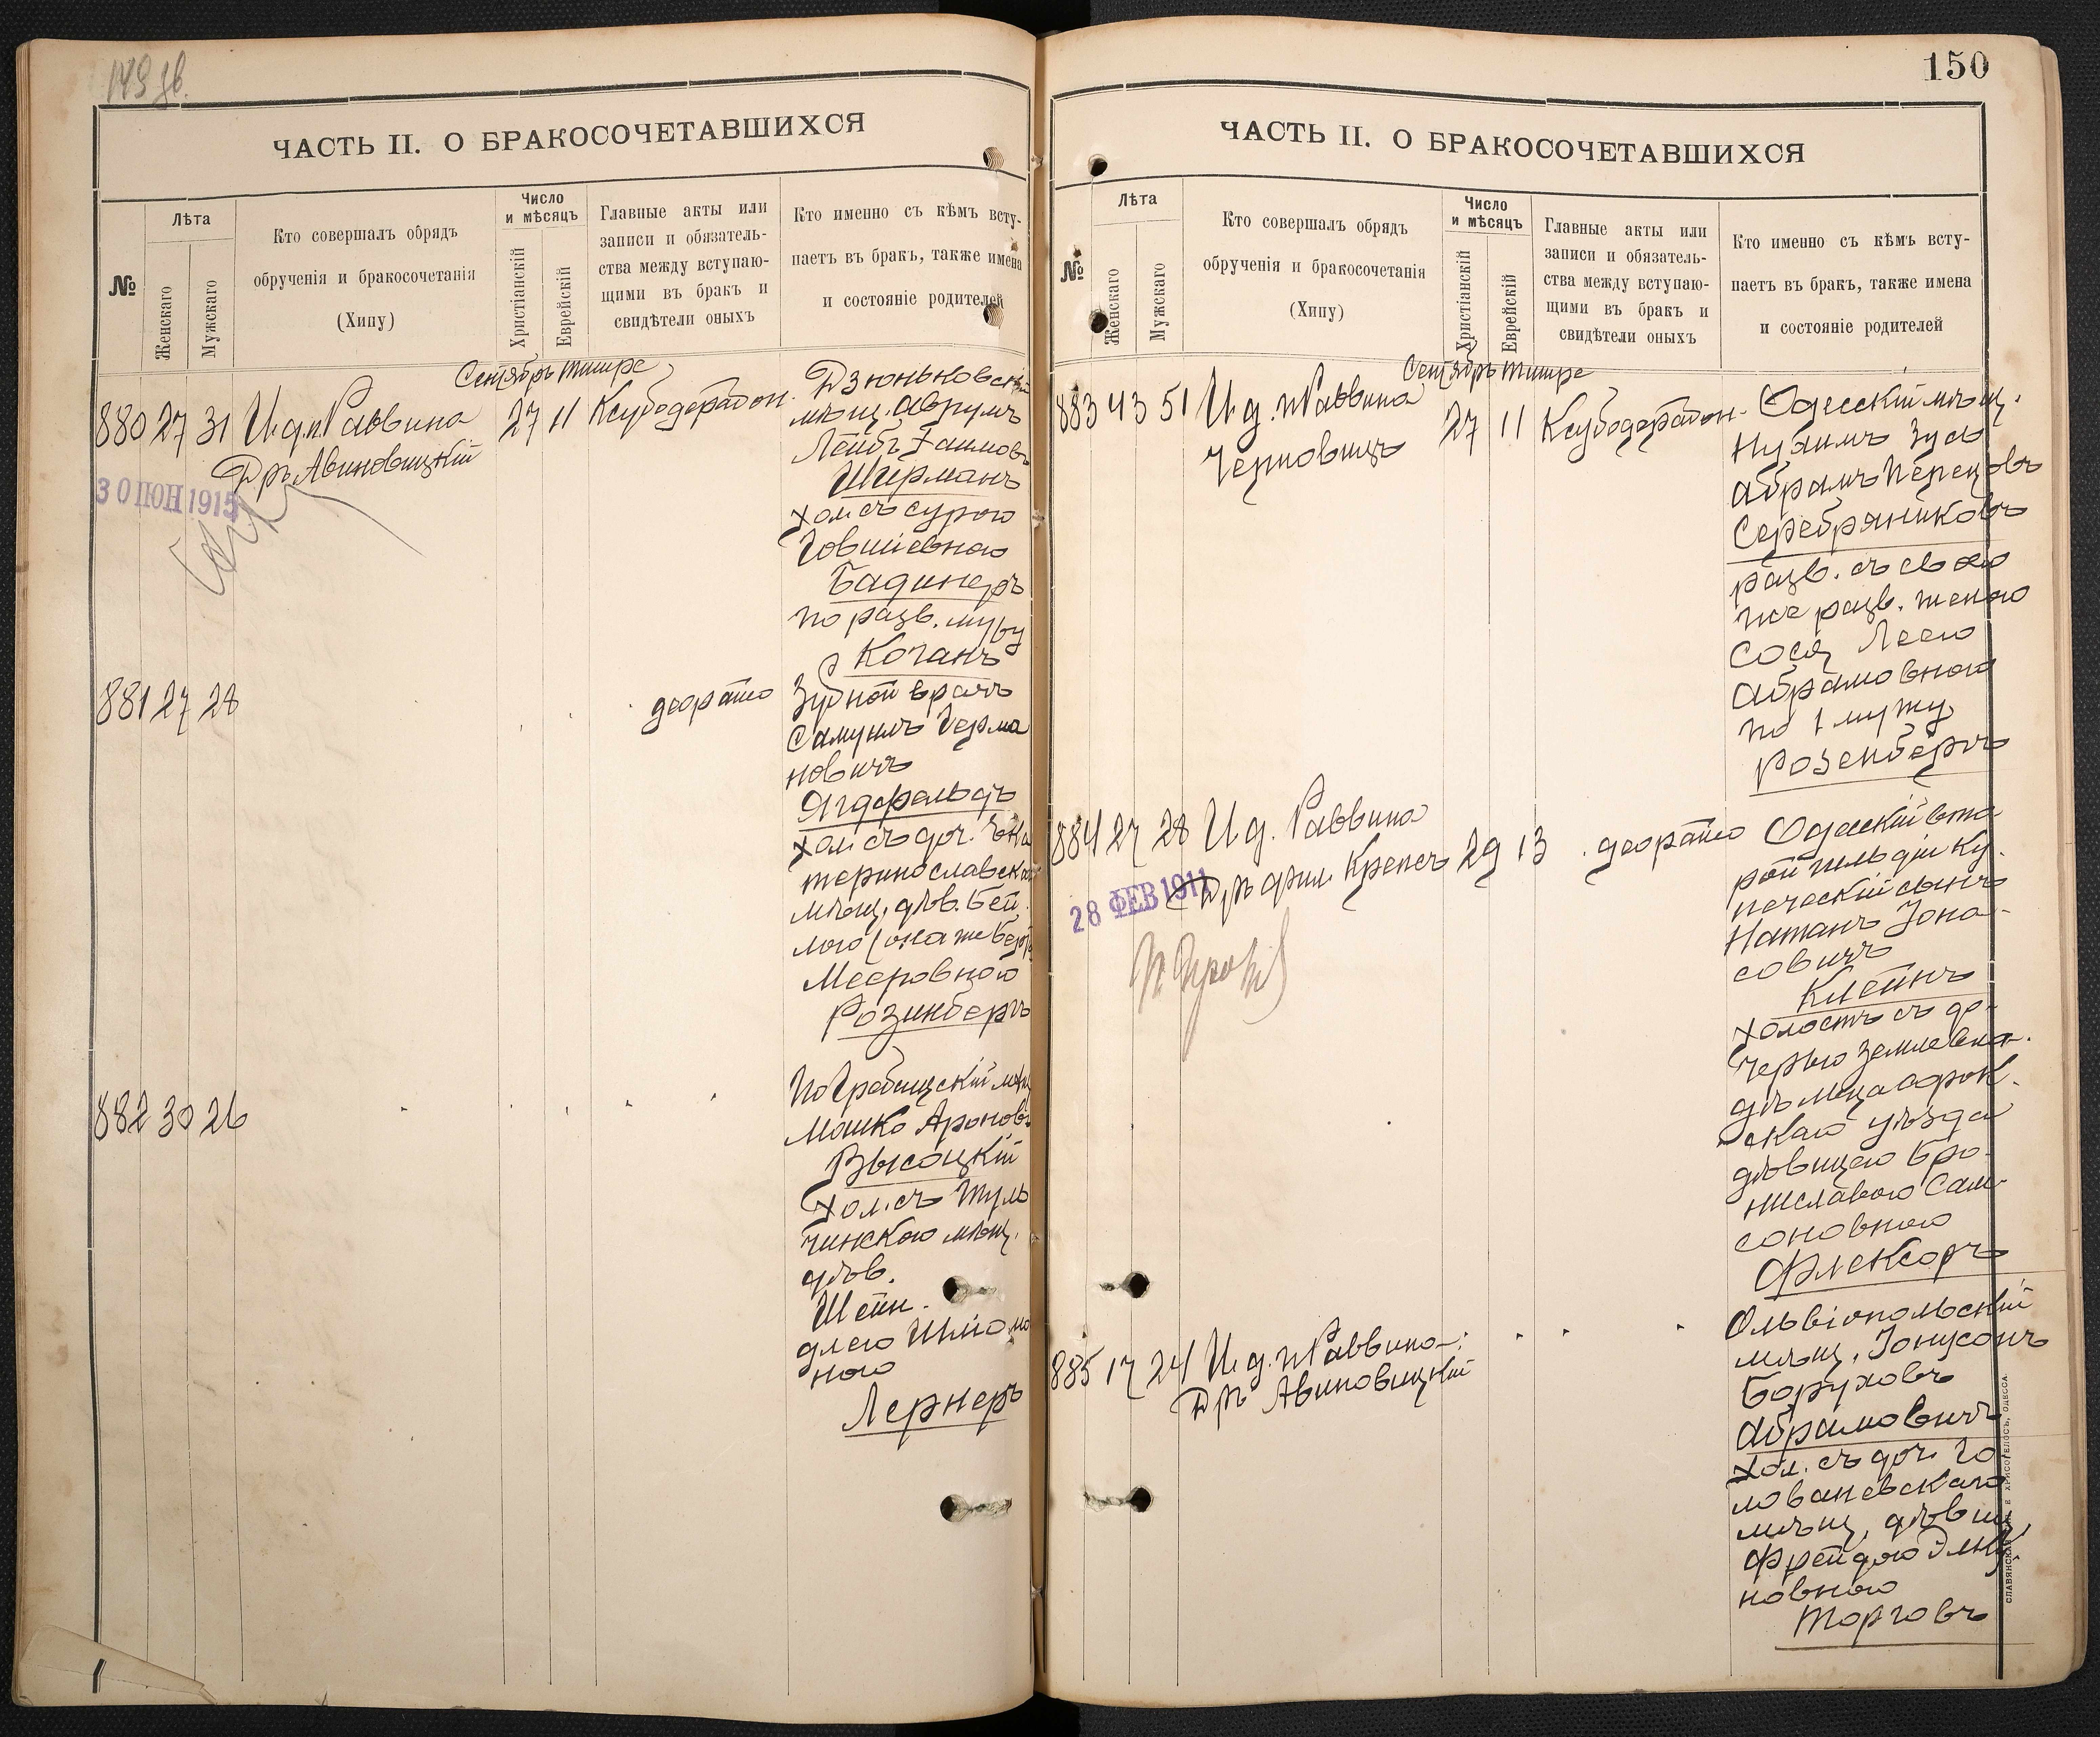 149 об.
ЧАСТЬ II. О БРАКОСОЧЕТАВШИХСЯ
№
Лѣта
Женскаго
Мужскаго
Кто совершалъ обрядъ
обрученія и бракосочетанія
(Хипу)
Число
и мѣсяцъ
Христіанскій
Еврейскій
Главные акты или
записи и обязатель-
ства между вступаю-
щими въ бракъ и
свидѣтели оныхъ
Кто именно съ кѣмъ всту-
паетъ въ бракъ, также имена
и состояніе родителей
Сентябръ тишре
880 27 31 И.д.п. Раввина 27 11 Ксубодерабон.
Дръ Авиновицкій
30 ІЮН 1915
Дзюньковскій
мѣщ. Аврумъ
Лейбъ Хаимовъ
Ширманъ
хол. съ Сурою
Іовшіевною
Бадинеръ
по разв. мужу
Коганъ
881 27 28 деорайсо
Зубной врачъ
Самуилъ Герма
новичъ
Ягдфельдъ
хол. съ доч. Ека
теринославск
мѣщ. дѣв. Бей
лою (она же Берта
Мееровною
Розинбергъ
882 30 26
Погребищскій мѣщ
Мошко Ароновъ
Высоцкій
хол. съ Туль
чинскою мѣщ.
дѣв.
Шейн.
длею Шліомо
ною
Лернеръ
150
ЧАСТЬ II. О БРАКОСОЧЕТАВШИХСЯ
№
Лѣта
Женскаго
Мужскаго
Кто совершалъ обрядъ
обрученія и бракосочетанія
(Хипу)
Число
и мѣсяцъ
Христіанскій
Еврейскій
Главные акты или
записи и обязатель-
ства между вступаю-
щими въ бракъ и
свидѣтели оныхъ
Кто именно съ кѣмъ всту-
паетъ въ бракъ, также имена
и состояніе родителей
Сентябръ тишре
883 43 51 И.д. п Раввина 27 11 Ксубодерабон.
Черновицъ
Одесскій мѣщ.
Нухимъ Зусь
Абрамъ Перецовъ
Серебряниковъ
разв. съ свою
же разв. женою
Сосѣ Леею
Абрамовною
по 1 мужу
Розенбергъ
884 27 28 И.д. Раввина
Дръ фил. Крепсъ 29 13 деорайсо
28 ФЕВ 1911
Одесскій вто
рой гильдіи ку.
печескій сынъ
Натанъ Іона-
совичъ
Клейнъ
холостъ съ до-
черью землевла-
дѣльца Сорок.
скаго уѣзда
дѣвицею Бро-
ниславою Сам-
соновною
Флексоръ
885 17 24 И.д. п Раввина
Дръ Авиновицкій
Ольвіопольскій
мѣщ. Іонусонъ
Боруховъ
Абрамовичъ
хол. съ доч. Го
лованевскаго
мѣщ. дѣвиц.
Фрейдою Эльку
новною
Торговъ